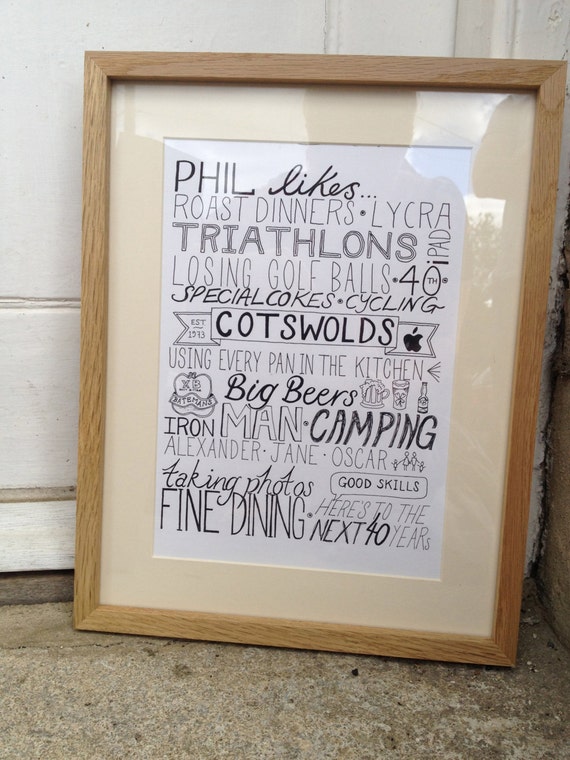 PHIL likes...
ROAST DINNERS • LYCRA
TRIATHLONS iPAD
LOSING GOLF BALLS • 40TH •
SPECIAL COKES • CYCLING
EST 1973 COTSWOLDS
USING EVERY PAN IN THE KITCHEN
XB BATEMANS Big Beers
IRON MAN • CAMPING
ALEXANDER • JANE • OSCAR
taking photos GOOD SKILLS
FINE DINING • HERE'S TO THE
NEXT 40 YEARS